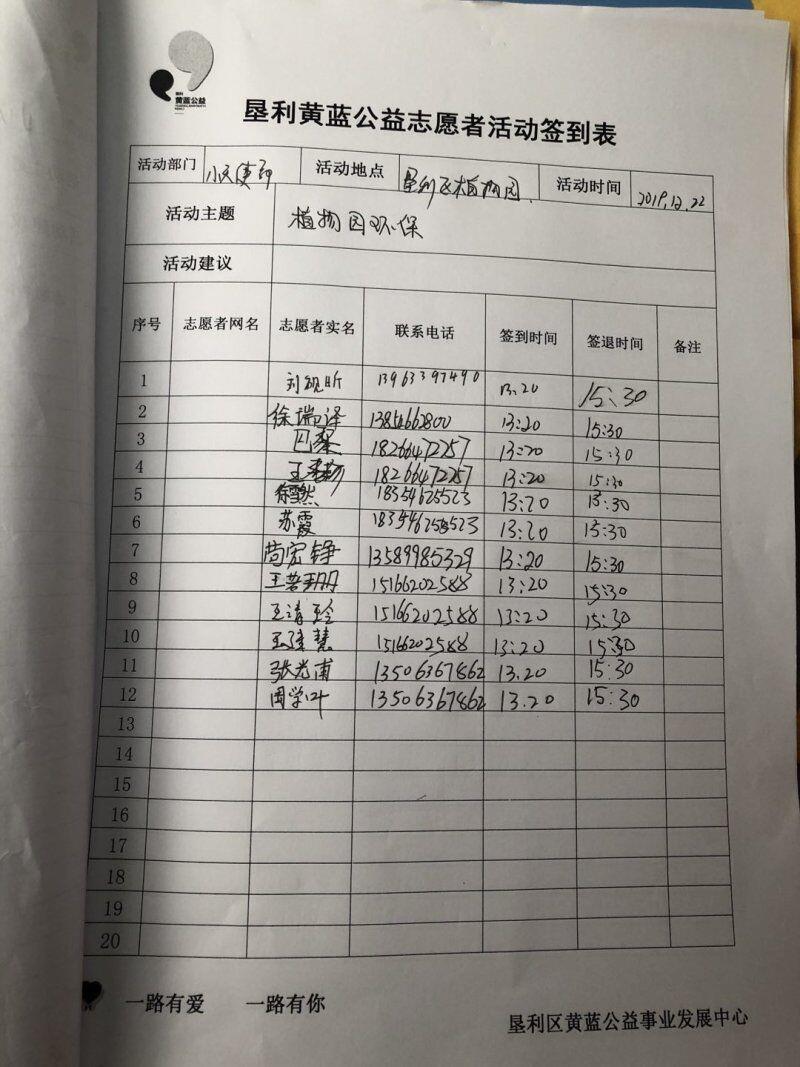 垦利
黄蓝公益
垦利黄蓝公益志愿者活动签到表
活动部门 活动地点 垦利区植物园 活动时间 2019.12.22
活动主题 植物园环保
活动建议
序号 志愿者网名 志愿者实名 联系电话 签到时间 签退时间 备注
1 13963397490 13:20 15:30
2 徐瑞泽 13854662800 13:20 15:30
3 巴黎 18266472257 13:20 15:30
4 18266472257 13:20 15:30
5 18354625523 13:20 15:30
6 苏霞 13:20 15:30
7 尚宏铮 13589985329 13:20 15:30
8 王若珊 15166202588 13:20 15:30
9 15166202588 13:20 15:30
10 15166202588 13:20 15:30
11 张光甫 13506367862 13.20 15:30
12 周学叶 13506367862 13.20 15:30
13
14
15
16
17
18
19
20
一路有爱 一路有你
垦利区黄蓝公益事业发展中心